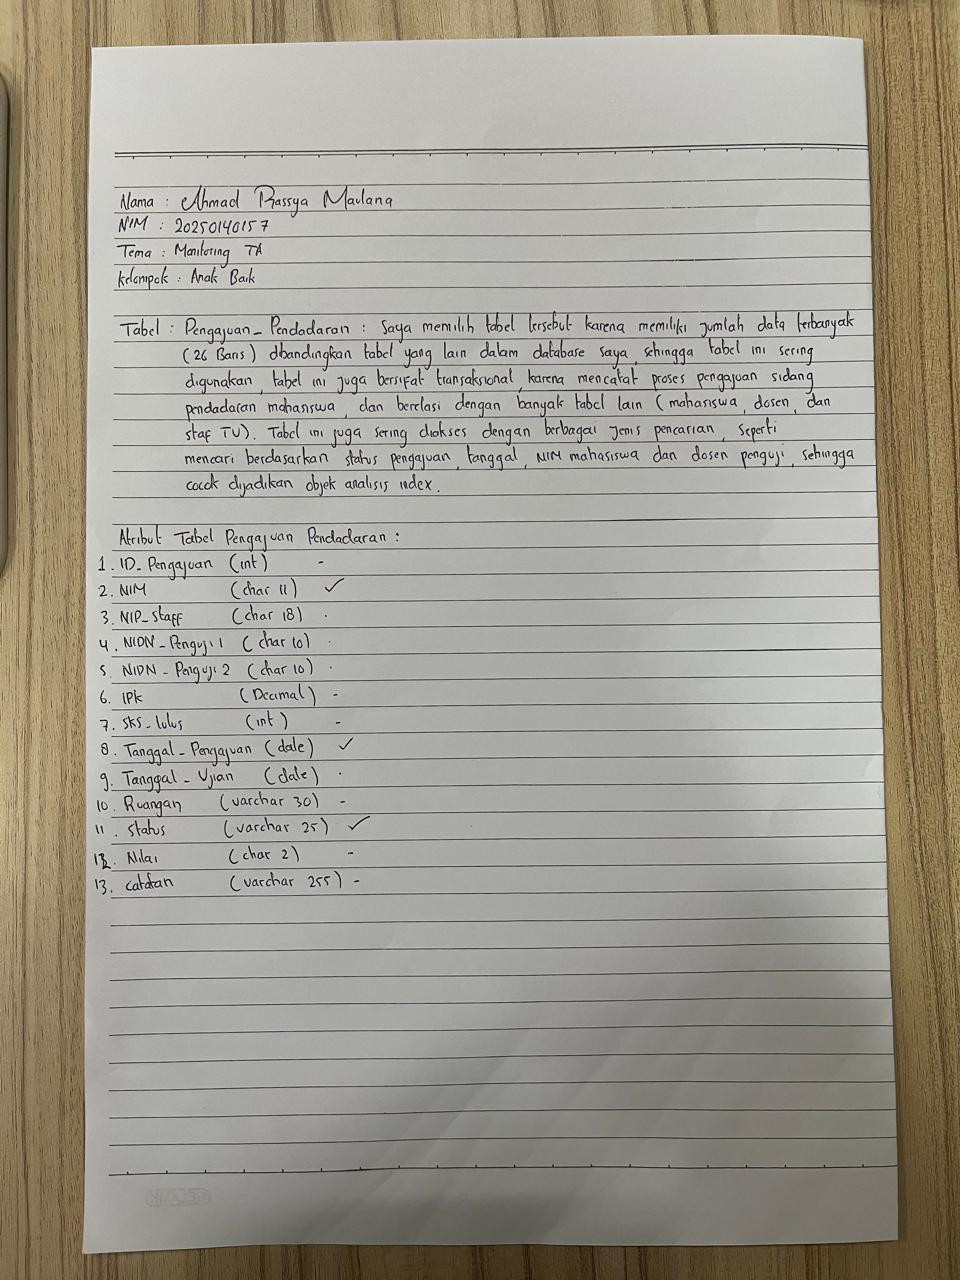 Nama : Ahmad Rassya Maulana
NIM : 20250140157
Tema : Monitoring TA
Kelompok : Anak Baik
Tabel : Pengajuan_Pendadaran : Saya memilih tabel tersebut karena memiliki jumlah data terbanyak
(26 Baris) dibandingkan tabel yang lain dalam database saya, sehingga tabel ini sering
digunakan, tabel ini juga bersifat transaksional, karena mencatat proses pengajuan sidang
pendadaran mahasiswa, dan berelasi dengan banyak tabel lain (mahasiswa, dosen, dan
staf TU). Tabel ini juga sering diakses dengan berbagai jenis pencarian, seperti
mencari berdasarkan status pengajuan, tanggal, NIM mahasiswa dan dosen penguji, sehingga
cocok dijadikan objek analisis index.
Atribut Tabel Pengajuan Pendadaran :
1. ID_Pengajuan (int) -
2. NIM (char 11) ✓
3. NIP_Staff (char 18) .
4. NIDN_Penguji 1 (char 10) .
5. NIDN_Penguji 2 (char 10) .
6. IPK (Decimal) -
7. SKS_lulus (int) -
8. Tanggal_Pengajuan (date) ✓
9. Tanggal_Ujian (date) .
10. Ruangan (varchar 30) -
11. Status (varchar 25) ✓
12. Nilai (char 2) -
13. catatan (varchar 255) -